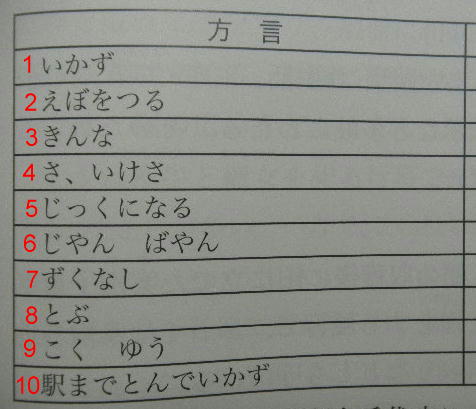 方言
1 いかず
2 えぼをつる
3 きんな
4 さ、いけさ
5 じっくになる
6 じやん　ばやん
7 ずくなし
8 とぶ
9 こく　ゆう
10 駅までとんでいかず